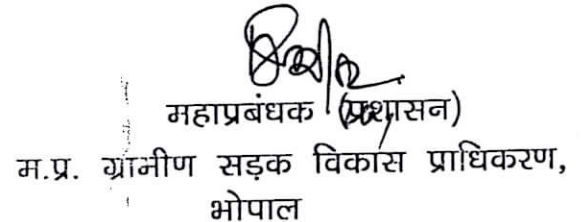 महाप्रबंधक (प्रशासन)
म.प्र. ग्रामीण सड़क विकास प्राधिकरण,
भोपाल